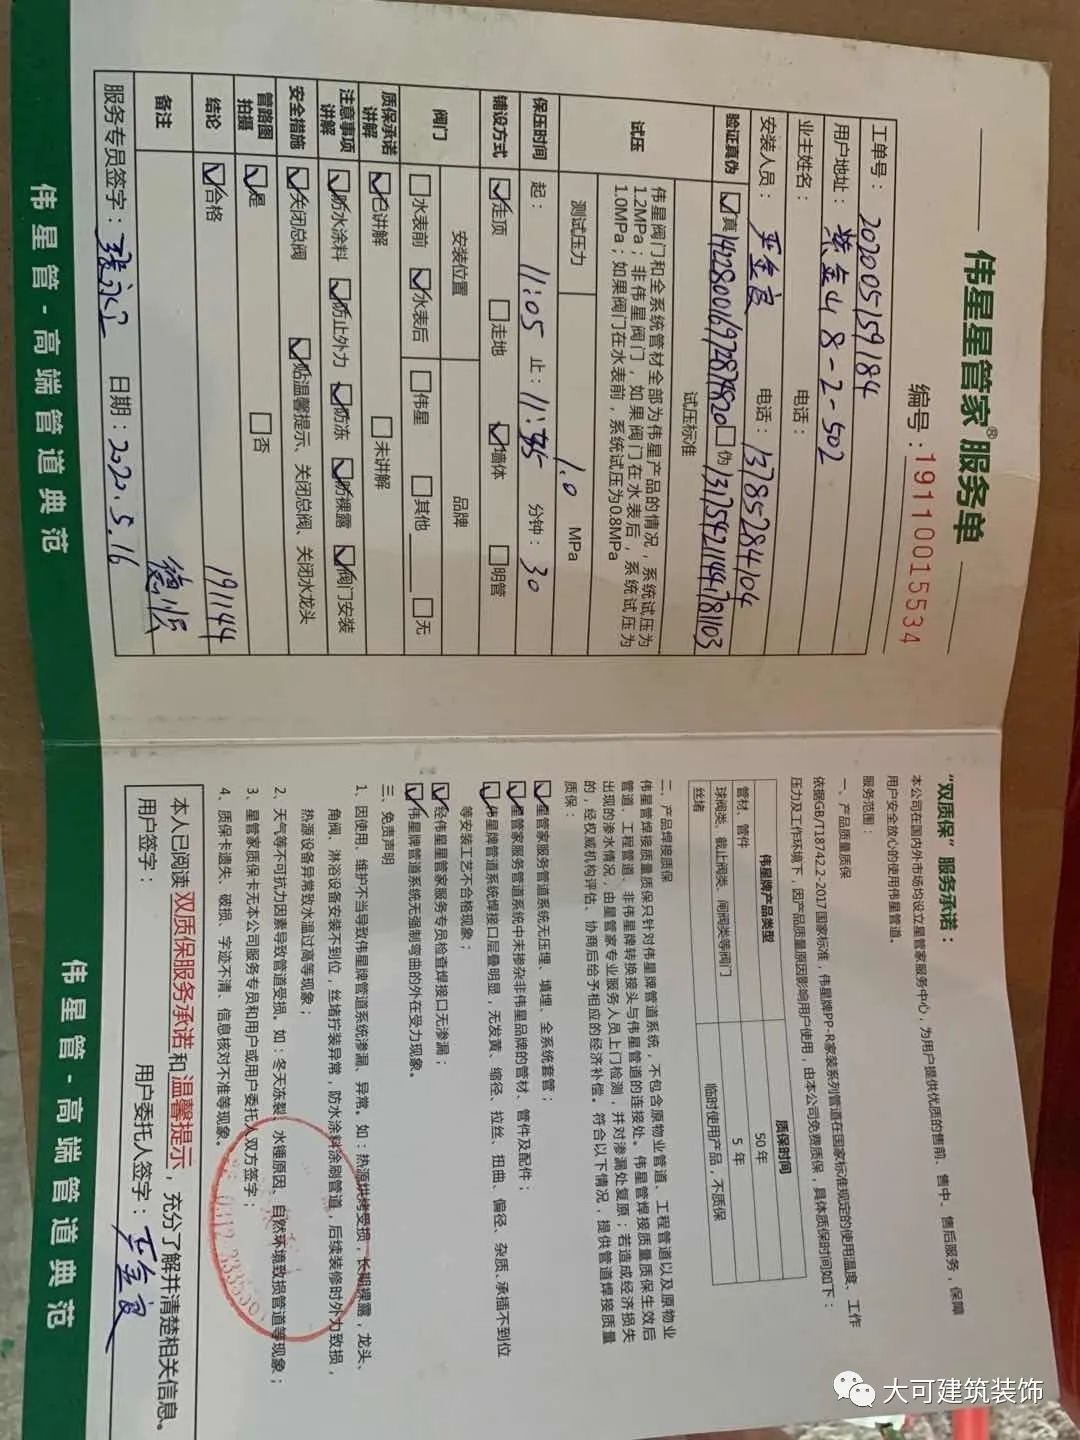 伟星星管家®服务单
编号：191100015534
工单号：202005159184
用户地址：紫金山8-2-502
业主姓名： 电话：
安装人员： 电话：13785284104
验证真伪 ☑真142280016972874820 □伪13175921144781103
试压 试压标准
伟星阀门和全系统管材全部为伟星产品的情况，系统试压为
1.2MPa；非伟星阀门，如果阀门在水表后，系统试压为
1.0MPa；如果阀门在水表前，系统试压为0.8MPa
测试压力 1.0 MPa
保压时间 起：11:05 止：11:35 分钟：30
铺设方式 ☑走顶 □走地 ☑墙体 □明管
阀门 安装位置 品牌
□水表前 ☑水表后 □伟星 □其他 □无
质保承诺讲解 ☑已讲解 □未讲解
注意事项讲解 ☑防水涂料 ☑防止外力 ☑防冻 ☑防裸露 ☑阀门安装
安全措施 ☑关闭总阀 ☑贴温馨提示、关闭总阀、关闭水龙头
管路图拍摄 ☑是 □否
结论 ☑合格 191144
备注
服务专员签字： 日期：2020.5.16
伟星管-高端管道典范
“双质保”服务承诺：
本公司在国内外市场均设立星管家服务中心，为用户提供优质的售前、售中、售后服务，保障
用户安全放心的使用伟星管道。
服务范围：
一、产品质量质保
依据GB/T18742.2-2017国家标准，伟星牌PP-R家装系列管道在国家标准规定的使用温度、工作
压力及工作环境下，因产品质量原因影响用户使用，由本公司免费质保，具体质保时间如下：
伟星牌产品类型 质保时间
管材、管件 50年
球阀类、截止阀类、闸阀类等阀门 5年
丝堵 临时使用产品，不质保
二、产品焊接质保
伟星管焊接质量质保只针对伟星牌管道系统，不包含原物业管道、工程管道以及原物业
管道、工程管道、非伟星牌转换接头与伟星管道的连接处。伟星管焊接质量质保生效后
出现的渗水情况，由星管家专业服务人员上门检测，并对渗漏处复原；若造成经济损失
的，经权威机构评估、协商后给予相应的经济补偿。符合以下情况，提供管道焊接质量
质保：
☑星管家服务管道系统无压埋、填埋、全系统套管；
☑星管家服务管道系统中未掺杂非伟星品牌的管材、管件及配件；
☑伟星牌管道系统焊接口层叠明显，无发黄、缩径、拉丝、扭曲、偏径、杂质、承插不到位
等安装工艺不合格现象；
☑经伟星星管家服务专员检查焊接口无渗漏；
☑伟星牌管道系统无强制弯曲的外在受力现象。
三、免责声明
1、因使用、维护不当导致伟星牌管道系统渗漏、异常。如：热源烘烤受损，长期裸露，龙头、
角阀、淋浴设备安装不到位，丝堵拧装异常，防水涂料涂刷管道，后续装修时外力致损，
热源设备异常致水温过高等现象；
2、天气等不可抗力因素导致管道受损。如：冬天冻裂、水锤原因、自然环境致损管道等现象；
3、星管家质保卡无本公司服务专员和用户或用户委托人双方签字；
4、质保卡遗失、破损、字迹不清、信息核对不准等现象。
本人已阅读双质保服务承诺和温馨提示，充分了解并清楚相关信息。
用户签字： 用户委托人签字：
伟星管-高端管道典范
大可建筑装饰